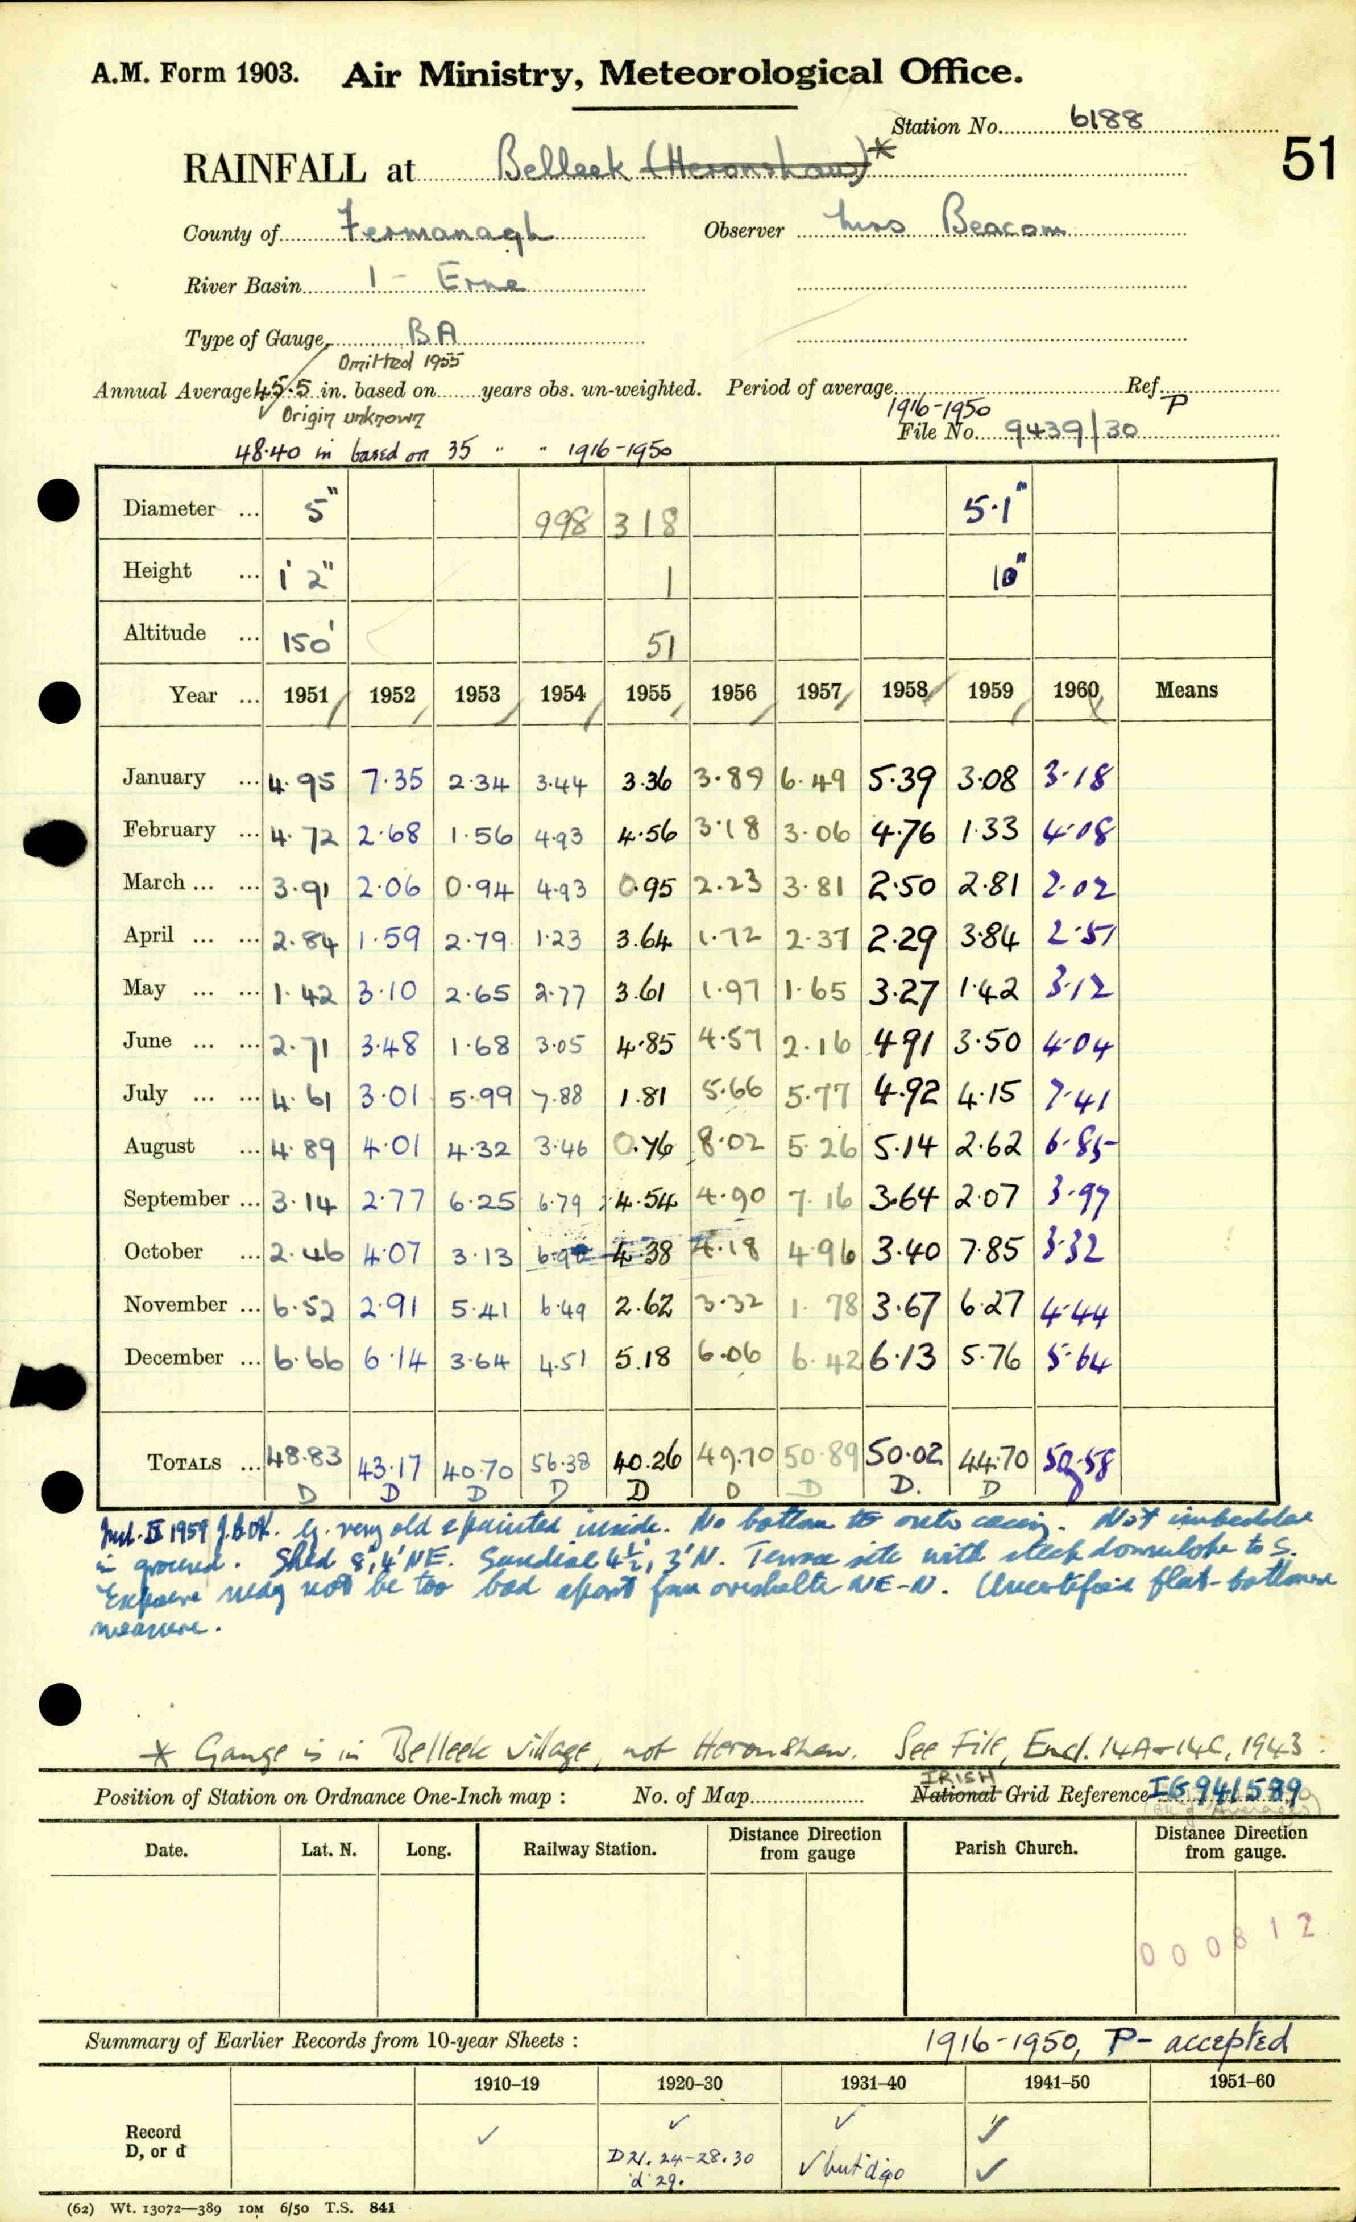 A.M. Form 1903. Air Ministry, Meteorological Office.
Station No. 6188
51
RAINFALL at Belleek (Heronshaw)*
County of Fermanagh Observer Miss Beacom
River Basin 1 - Erne
Type of Gauge BA
Omitted 1955
Annual Average 45.5 in. based on years obs. un-weighted. Period of average 1916-1950 Ref. P
Origin unknown
File No. 9439/30
48.40 in based on 35 " " 1916-1950
Diameter ... 5" 998 318 5.1"
Height ... 1' 2" 1 10"
Altitude ... 150' 51
Year ... 1951 1952 1953 1954 1955 1956 1957 1958 1959 1960 Means
January ... 4.95 7.35 2.34 3.44 3.36 3.89 6.49 5.39 3.08 3.18
February ... 4.72 2.68 1.56 4.93 4.56 3.18 3.06 4.76 1.33 4.08
March ... ... 3.91 2.06 0.94 4.93 0.95 2.23 3.81 2.50 2.81 2.02
April ... ... 2.84 1.59 2.79 1.23 3.64 1.72 2.37 2.29 3.84 2.51
May ... ... 1.42 3.10 2.65 2.77 3.61 1.97 1.65 3.27 1.42 3.12
June ... ... 2.71 3.48 1.68 3.05 4.85 4.57 2.16 4.91 3.50 4.04
July ... ... 4.61 3.01 5.99 7.88 1.81 5.66 5.77 4.92 4.15 7.41
August ... 4.89 4.01 4.32 3.46 0.76 8.02 5.26 5.14 2.62 6.85
September ... 3.14 2.77 6.25 6.79 4.54 4.90 7.16 3.64 2.07 3.97
October ... 2.46 4.07 3.13 6.90 4.38 4.18 4.96 3.40 7.85 3.32
November ... 6.52 2.91 5.41 6.49 2.62 3.32 1.78 3.67 6.27 4.44
December ... 6.66 6.14 3.64 4.51 5.18 6.06 6.42 6.13 5.76 5.64
TOTALS ... 48.83 43.17 40.70 56.38 40.26 49.70 50.89 50.02 44.70 50.58
D D D D D D D D. D
1959 G. very old & painted inside. No bottom to outer casing. Not imbedded
in ground. Shed 8', 4' NE. Sundial 4½', 3' N. Terrace site with steep downslope to S.
Exposure may not be too bad apart from overshelter NE-N. Uncertified flat-bottomed
measure.
* Gauge is in Belleek village, not Heronshaw. See File, Encl. 14A-14C, 1943.
Position of Station on Ordnance One-Inch map : No. of Map National IRISH Grid Reference IG 941589
Date. Lat. N. Long. Railway Station. Distance Direction from gauge Parish Church. Distance Direction from gauge.
000812
Summary of Earlier Records from 10-year Sheets : 1916-1950, P- accepted
1910–19 1920–30 1931–40 1941–50 1951–60
Record
D, or d
D 21. 24-28. 30
'd' 29.
(62) Wt. 13072—389 10M 6/50 T.S. 841